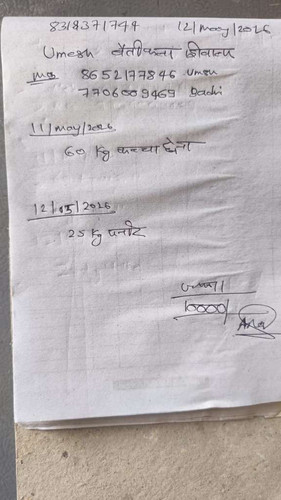 8318371744 12/may/2026
Umesh
mo 8652177846 Umesh
7706009469
11/may/2026
60 Kg कच्चा छेना
12/05/2026
25 Kg पनीर
जमा
10000/